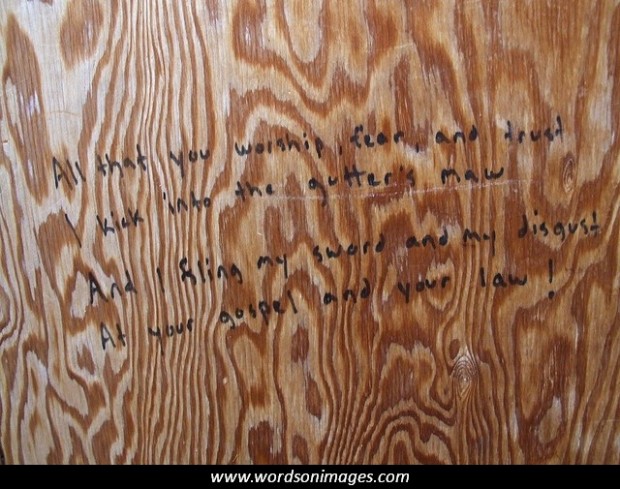 All that you worship, fear, and trust
I kick into the gutter's maw
And I fling my sword and my disgust
At your gospel and your law!
www.wordsonimages.com